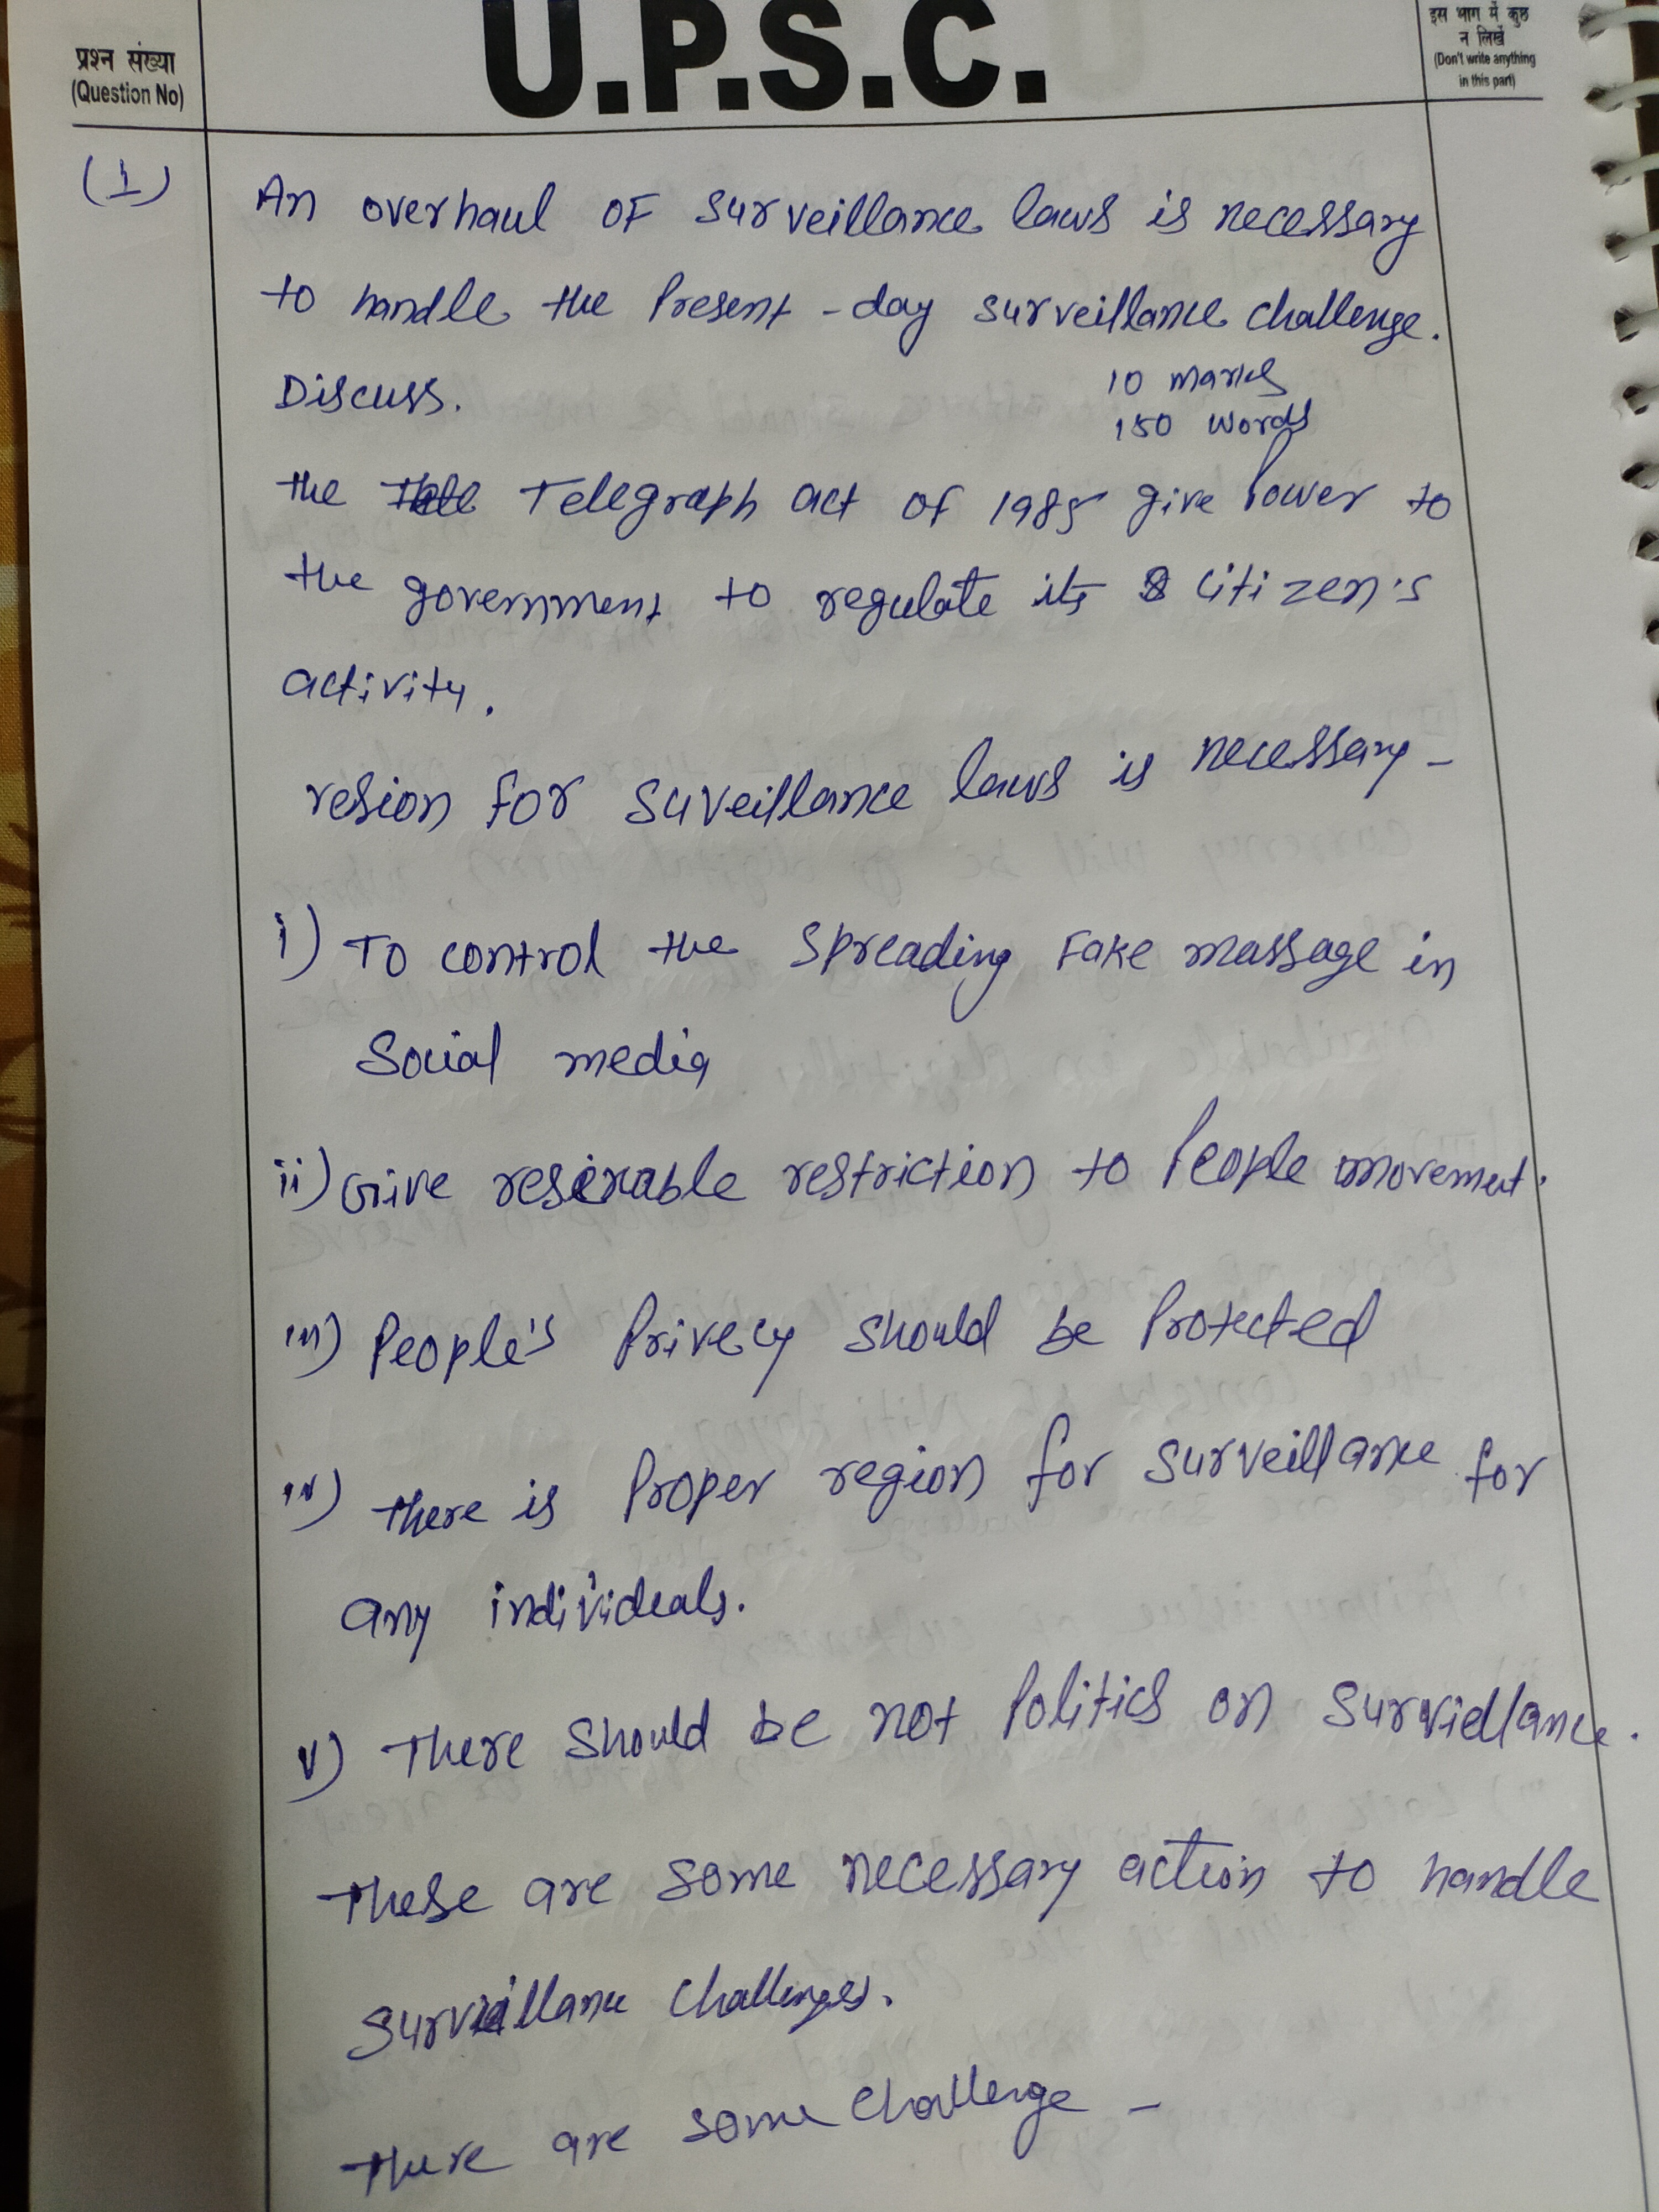 प्रश्न संख्या
(Question No)
U.P.S.C.
इस भाग में कुछ
न लिखें
(Don't write anything
in this part)
(1)
An overhaul of surveillance laws is necessary
to handle the present-day surveillance challenge.
Discuss.
10 marks
150 words
the Telegraph act of 1985 give power to
the government to regulate its citizen's
activity.
resion for suveillance laws is necessary-
i) To control the spreading fake massage in
social media
ii) Give resirable restriction to people movement.
iii) People's privecy should be protected
iv) there is proper region for surveillance for
any individeals.
v) There should be not politics on surviellance.
these are some necessary action to handle
surveillance challenges.
there are some challenge -